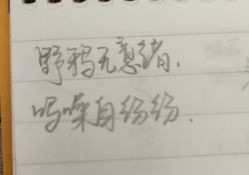 野鸦无意绪,
鸣噪自纷纷.